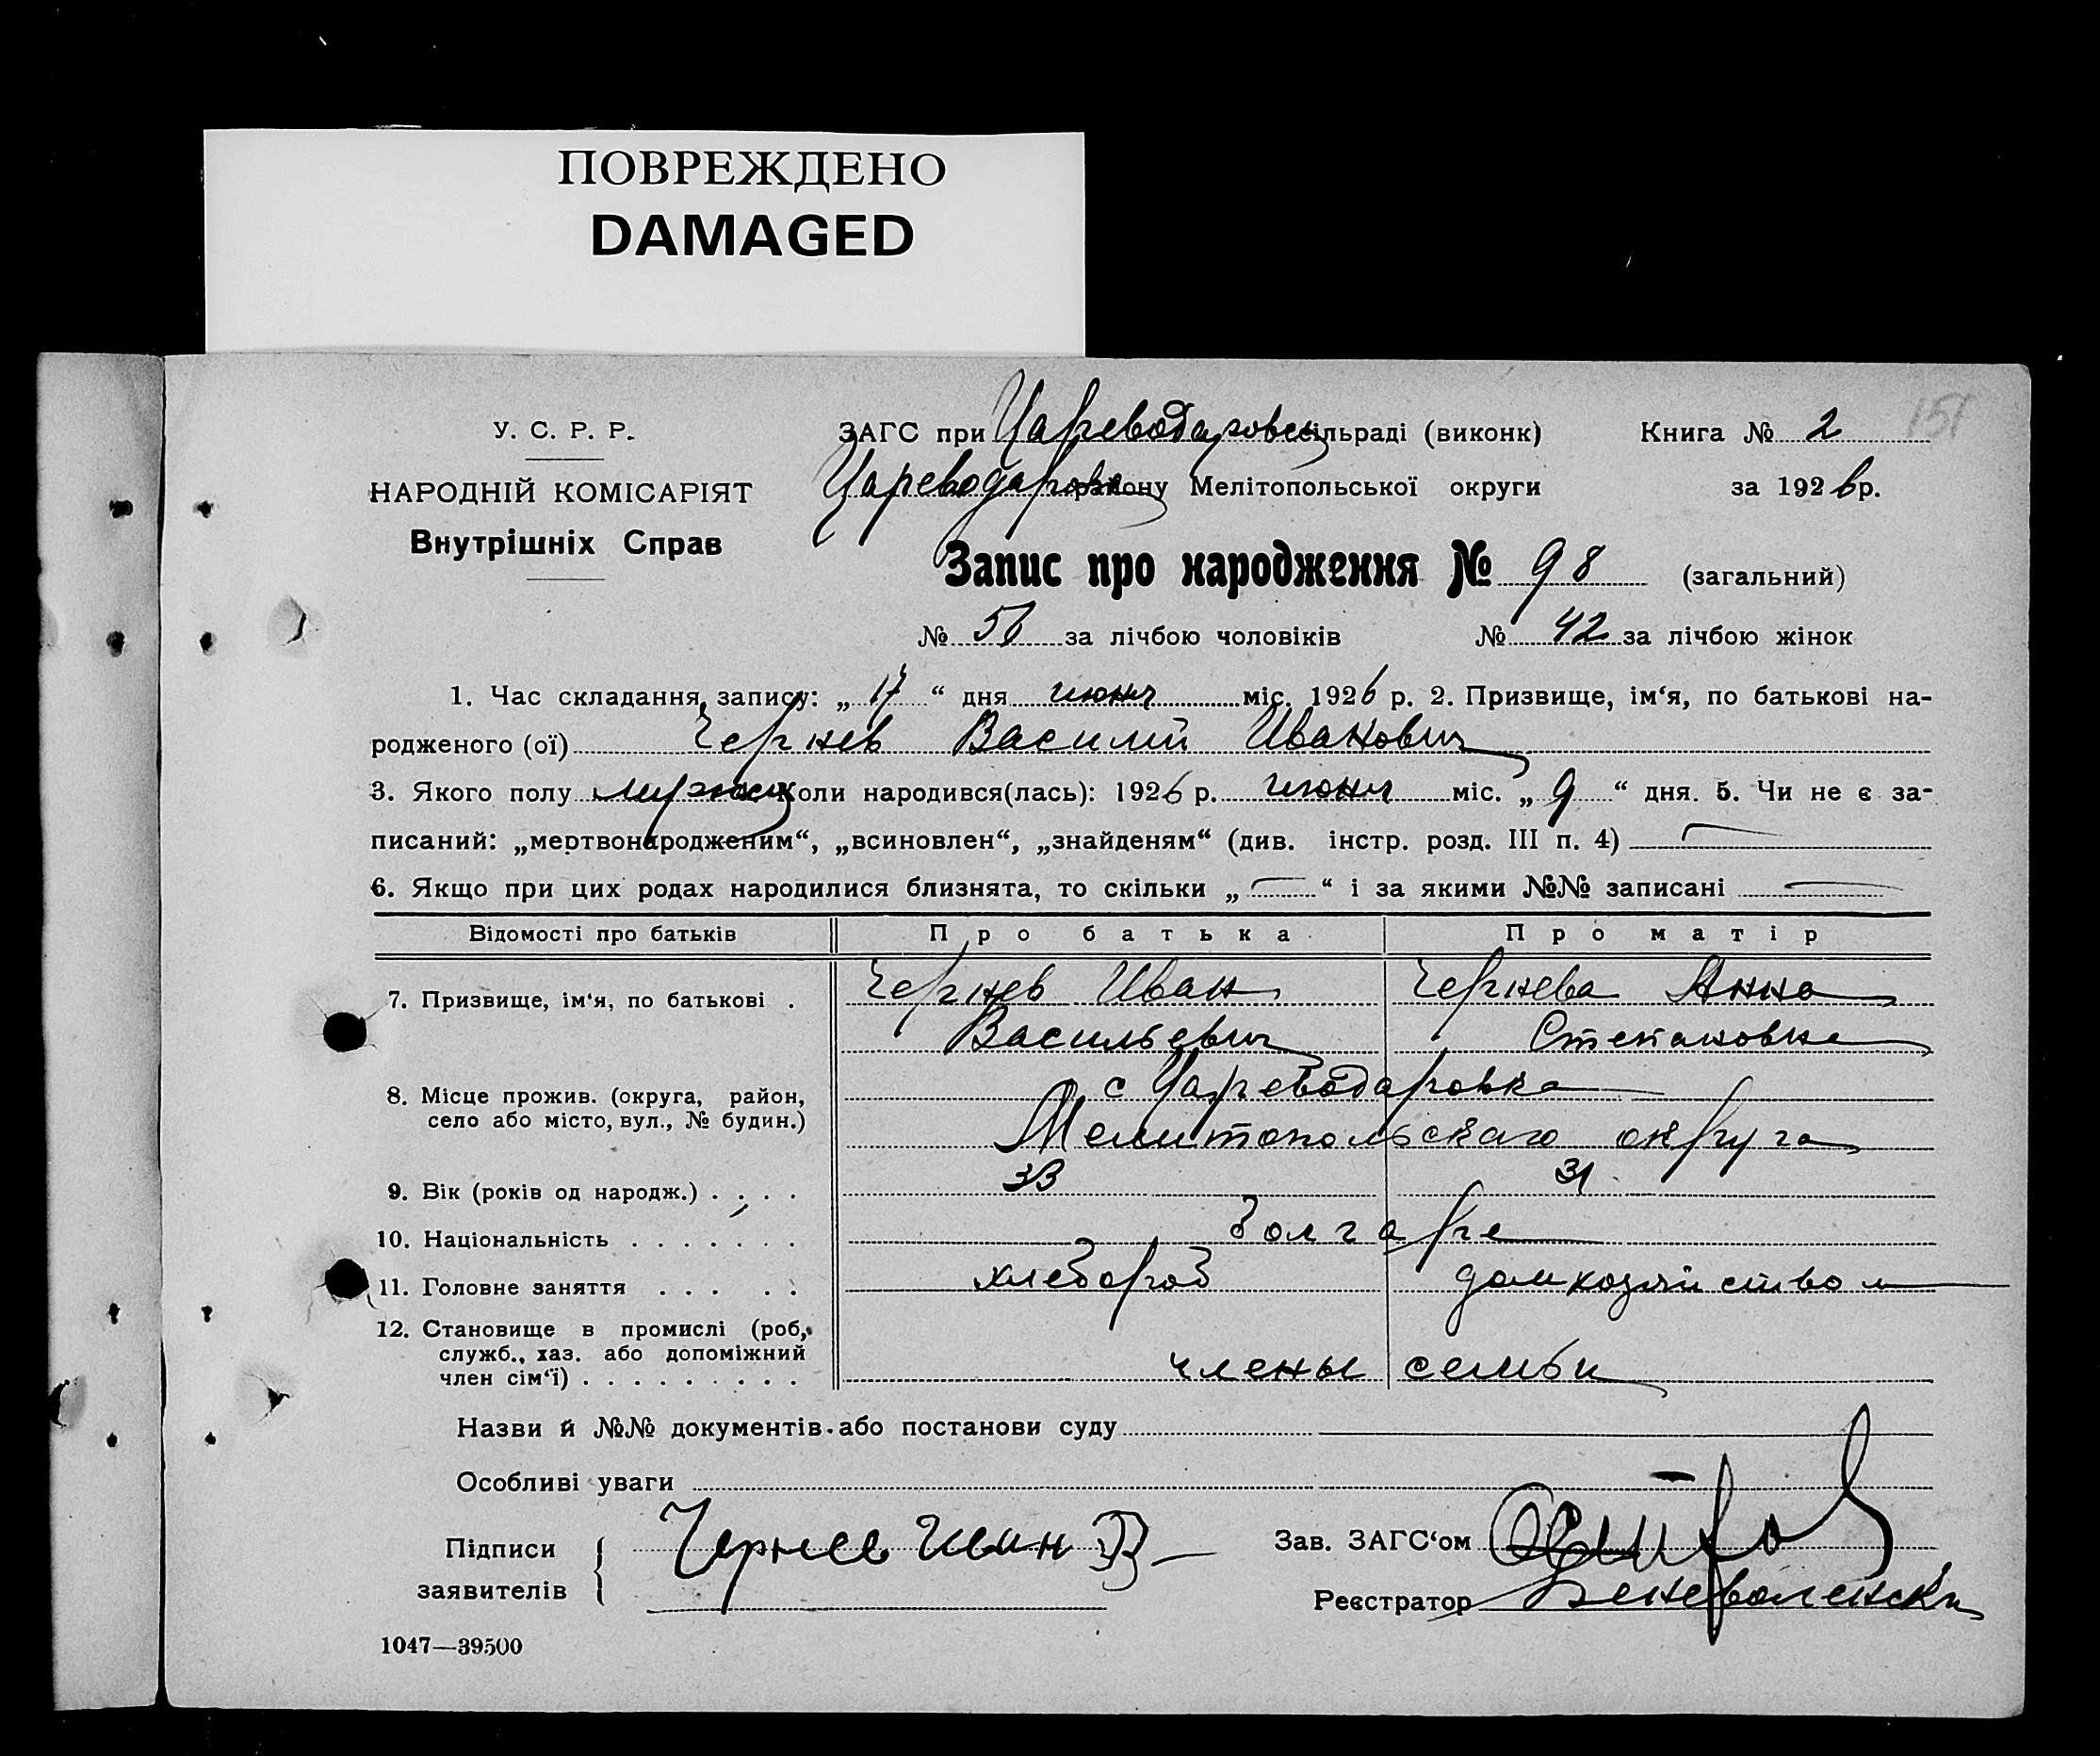 ПОВРЕЖДЕНО
DAMAGED
151
У. С. Р. Р.
НАРОДНІЙ КОМІСАРІЯТ
Внутрішніх Справ
ЗАГС при Цареводаровск сільраді (виконк) Книга № 2
Цареводаровс району Мелітопольської округи за 1926 р.
Запис про народження № 98 (загальний)
№ 56 за лічбою чоловіків № 42 за лічбою жінок
1. Час складання запису: „ 17 “ дня июня міс. 1926 р. 2. Призвище, ім‘я, по батькові на-
родженого (ої) Чернев Василий Иванович
3. Якого полу мужск Коли народився(лась): 1926 р. июня міс. „ 9 “ дня. 5. Чи не є за-
писаний: „мертвонародженим“, „всиновлен“, „знайденям“ (див. інстр. розд. III п. 4) —
6. Якщо при цих родах народилися близнята, то скільки „ — “ і за якими №№ записані —
Відомості про батьків Про батька Про матір
7. Призвище, ім‘я, по батькові . Чернев Иван Чернева Анна
Васильевич Степановна
8. Місце прожив. (округа, район, с Цареводаровка
село або місто, вул., № будин.) Мелитопольскаго округа
9. Вік (років од народж.) . . . . 33 31
10. Національність . . . . . . . Болгаре
11. Головне заняття . . . . . хлебороб домхозяйством
12. Становище в промислі (роб,
служб., хаз. або допоміжний
член сім‘ї) . . . . . . . . . члены семьи
Назви й №№ документів або постанови суду
Особливі уваги
Підписи Чернев Иван В Зав. ЗАГС‘ом
заявителів Реєстратор Беневоленски
1047—39500